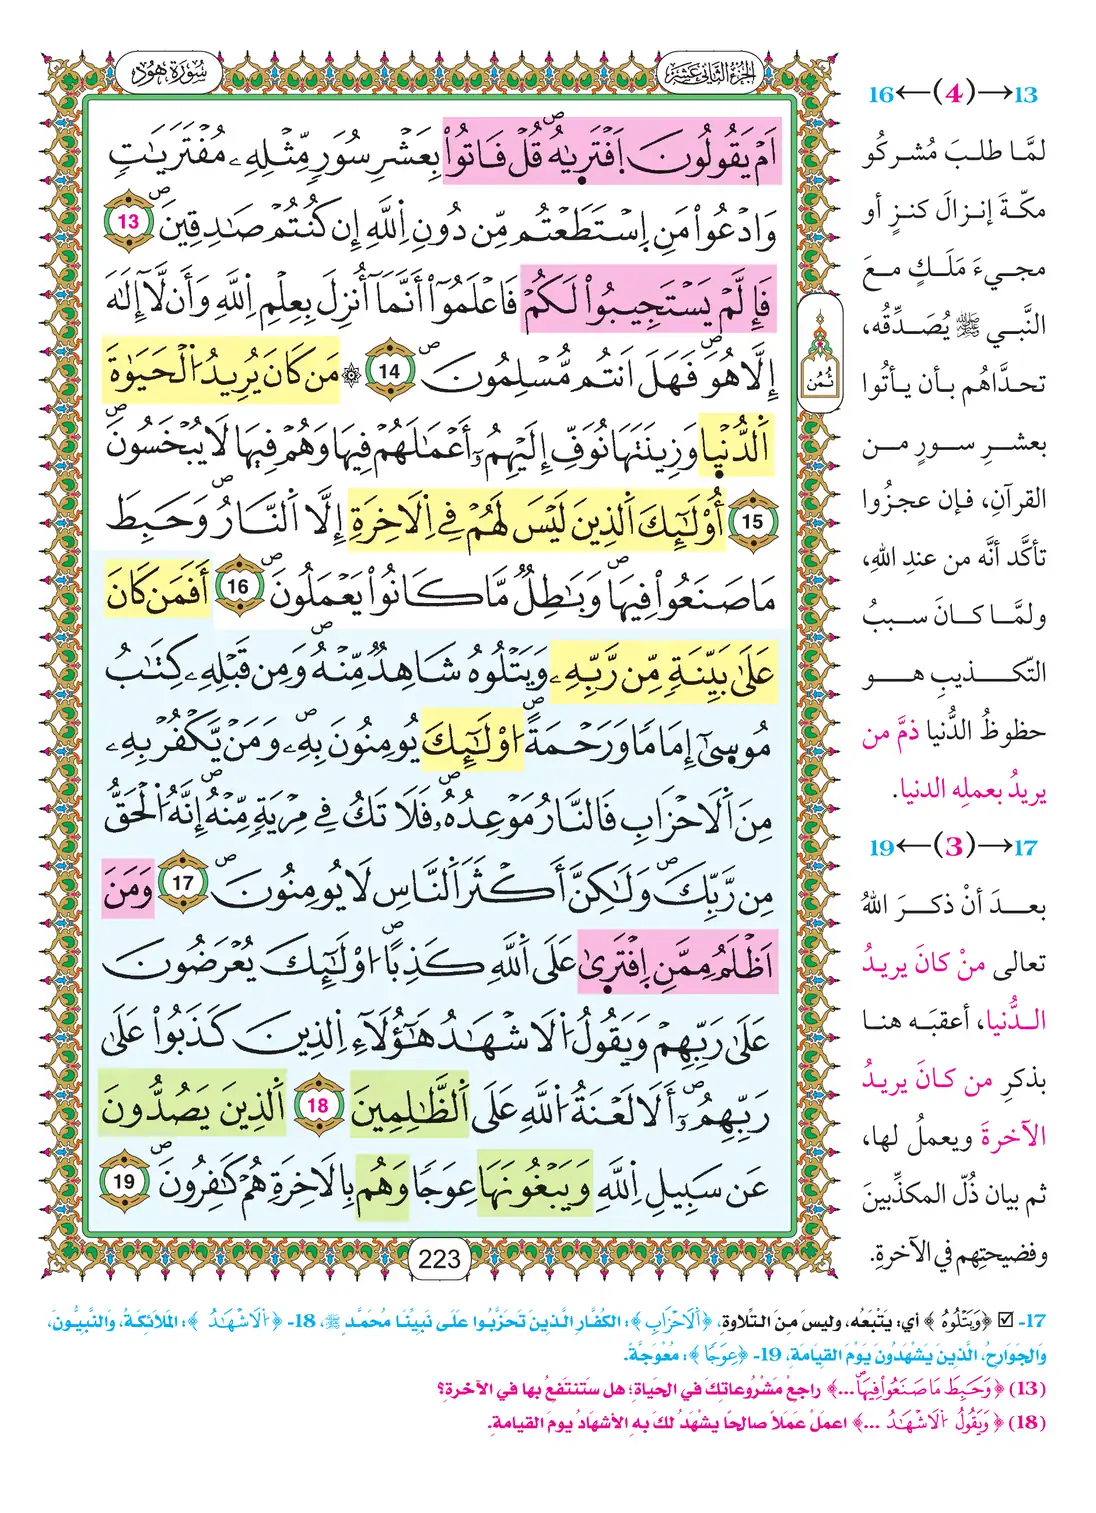 الجزء الثاني عشر
سورة هود
أَمْ يَقُولُونَ اَفْتَرَىٰهُ قُلْ فَاتُواْ بِعَشْرِ سُوَرٖ مِّثْلِهِۦ مُفْتَرَيَٰتٖ
وَادْعُواْ مَنِ اِسْتَطَعْتُم مِّن دُونِ اِ۬للَّهِ إِن كُنتُمْ صَٰدِقِينَ 13
فَإِلَّمْ يَسْتَجِيبُواْ لَكُمْ فَاعْلَمُوٓاْ أَنَّمَآ أُنزِلَ بِعِلْمِ اِ۬للَّهِ وَأَن لَّآ إِلَٰهَ
إِلَّا هُوَ فَهَلَ اَنتُم مُّسْلِمُونَ 14 ۞ مَن كَانَ يُرِيدُ اُ۬لْحَيَوٰةَ
اَ۬لدُّنْيَا وَزِينَتَهَا نُوَفِّ إِلَيْهِمُۥٓ أَعْمَٰلَهُمْ فِيهَا وَهُمْ فِيهَا لَا يُبْخَسُونَ
15 أُوْلَٰٓئِكَ اَ۬لذِينَ لَيْسَ لَهُمْ فِے اِ۬لَاخِرَةِ إِلَّا اَ۬لنَّارُ وَحَبِطَ
مَا صَنَعُواْ فِيهَا وَبَٰطِلٞ مَّا كَانُواْ يَعْمَلُونَ 16 أَفَمَن كَانَ
عَلَىٰ بَيِّنَةٖ مِّن رَّبِّهِۦ وَيَتْلُوهُ شَاهِدٞ مِّنْهُ وَمِن قَبْلِهِۦ كِتَٰبُ
مُوسَىٰٓ إِمَامٗا وَرَحْمَةً اُوْلَٰٓئِكَ يُومِنُونَ بِهِۦ وَمَنْ يَّكْفُرْ بِهِۦ
مِنَ اَ۬لَاحْزَابِ فَالنَّارُ مَوْعِدُهُۥ فَلَا تَكُ فِے مِرْيَةٖ مِّنْهُ إِنَّهُ اُ۬لْحَقُّ
مِن رَّبِّكَ وَلَٰكِنَّ أَكْثَرَ اَ۬لنَّاسِ لَا يُومِنُونَ 17 وَمَنَ
اَظْلَمُ مِمَّنِ اِفْتَرَىٰ عَلَى اَ۬للَّهِ كَذِباً اُوْلَٰٓئِكَ يُعْرَضُونَ
عَلَىٰ رَبِّهِمْ وَيَقُولُ اُ۬لَاشْهَٰدُ هَٰٓؤُلَآءِ اِ۬لذِينَ كَذَبُواْ عَلَىٰ
رَبِّهِمُۥٓ أَلَا لَعْنَةُ اُ۬للَّهِ عَلَى اَ۬لظَّٰلِمِينَ 18 اَ۬لذِينَ يَصُدُّونَ
عَن سَبِيلِ اِ۬للَّهِ وَيَبْغُونَهَا عِوَجٗا وَهُم بِالَاخِرَةِ هُمْ كَٰفِرُونَ 19
ثمن
223
13→(4)←16
لمَّا طلبَ مُشركُو
مكّةَ إنزالَ كنزٍ أو
مجيءَ مَلَكٍ معَ
النَّبي ﷺ يُصَدِّقُه،
تحدَّاهُم بأن يأتُوا
بعشرِ سورٍ من
القرآنِ، فإن عجزُوا
تأكَّد أنَّه من عندِ اللهِ،
ولمَّا كانَ سببُ
التّكذيبِ هو
حظوظُ الدُّنيا ذمَّ من
يريدُ بعملِه الدنيا.
17→(3)←19
بعدَ أنْ ذكرَ اللهُ
تعالى منْ كانَ يريدُ
الدُّنيا، أعقبَه هنا
بذكرِ من كانَ يريدُ
الآخرةَ ويعملُ لها،
ثم بيان ذُلّ المكذِّبينَ
وفضيحتِهم في الآخرةِ.
17- ☑ ﴿وَيَتْلُوهُ﴾ أي: يَتْبَعُه، وليسَ مِنَ التِّلاوةِ، ﴿اَ۬لَاحْزَابِ﴾: الكُفَّارِ الَّذينَ تَحَزَّبُوا عَلَى نَبيِّنَا مُحَمَّدٍ ﷺ، 18- ﴿اُ۬لَاشْهَٰدُ﴾: المَلَائِكَةُ، وَالنَّبيُّونَ،
وَالجَوَارِحُ، الَّذينَ يَشْهَدُونَ يَوْمَ القِيَامَةِ، 19- ﴿عِوَجًا﴾: مُعْوَجَّةً.
(13) ﴿وَحَبِطَ مَا صَنَعُواْ فِيهَا...﴾ راجعْ مَشْرُوعاتِكَ في الحَيَاةِ؛ هل سَتَنتفعُ بها في الآخرةِ؟
(18) ﴿وَيَقُولُ اُ۬لَاشْهَٰدُ ...﴾ اعملْ عَمَلاً صالحًا يشْهَدُ لكَ بهِ الأشهَادُ يومَ القيامةِ.